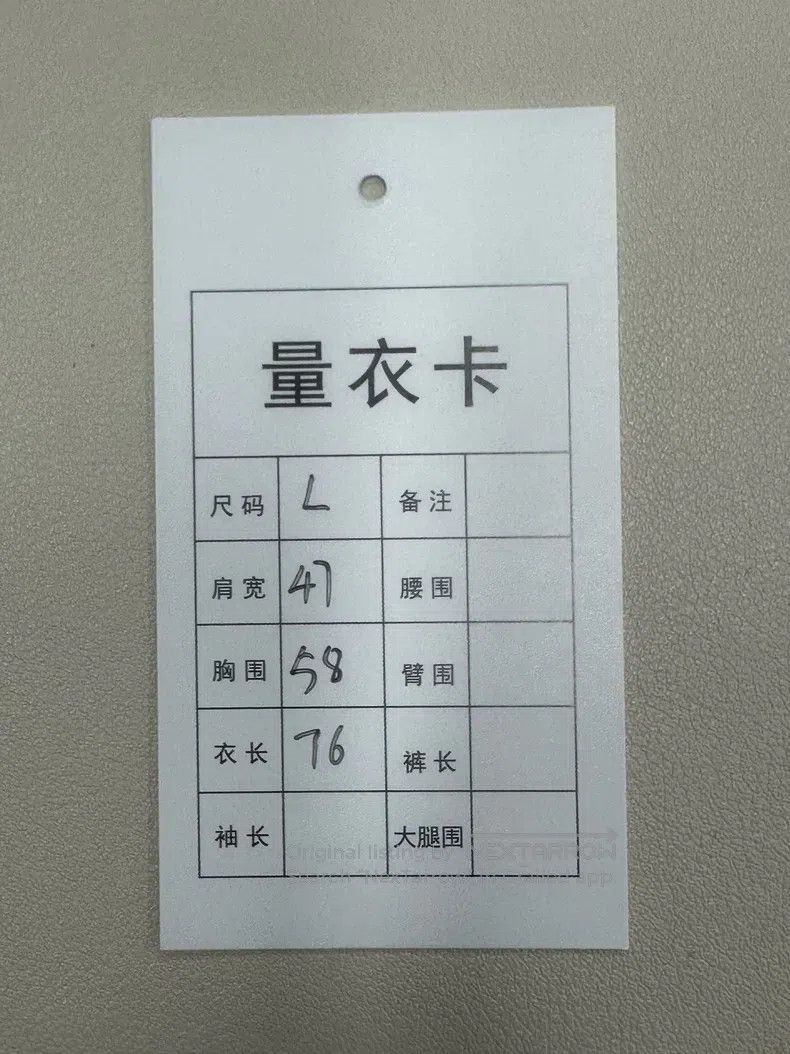 量衣卡
尺码 L 备注
肩宽 47 腰围
胸围 58 臂围
衣长 76 裤长
袖长 大腿围
Original listing by NEXTARROW